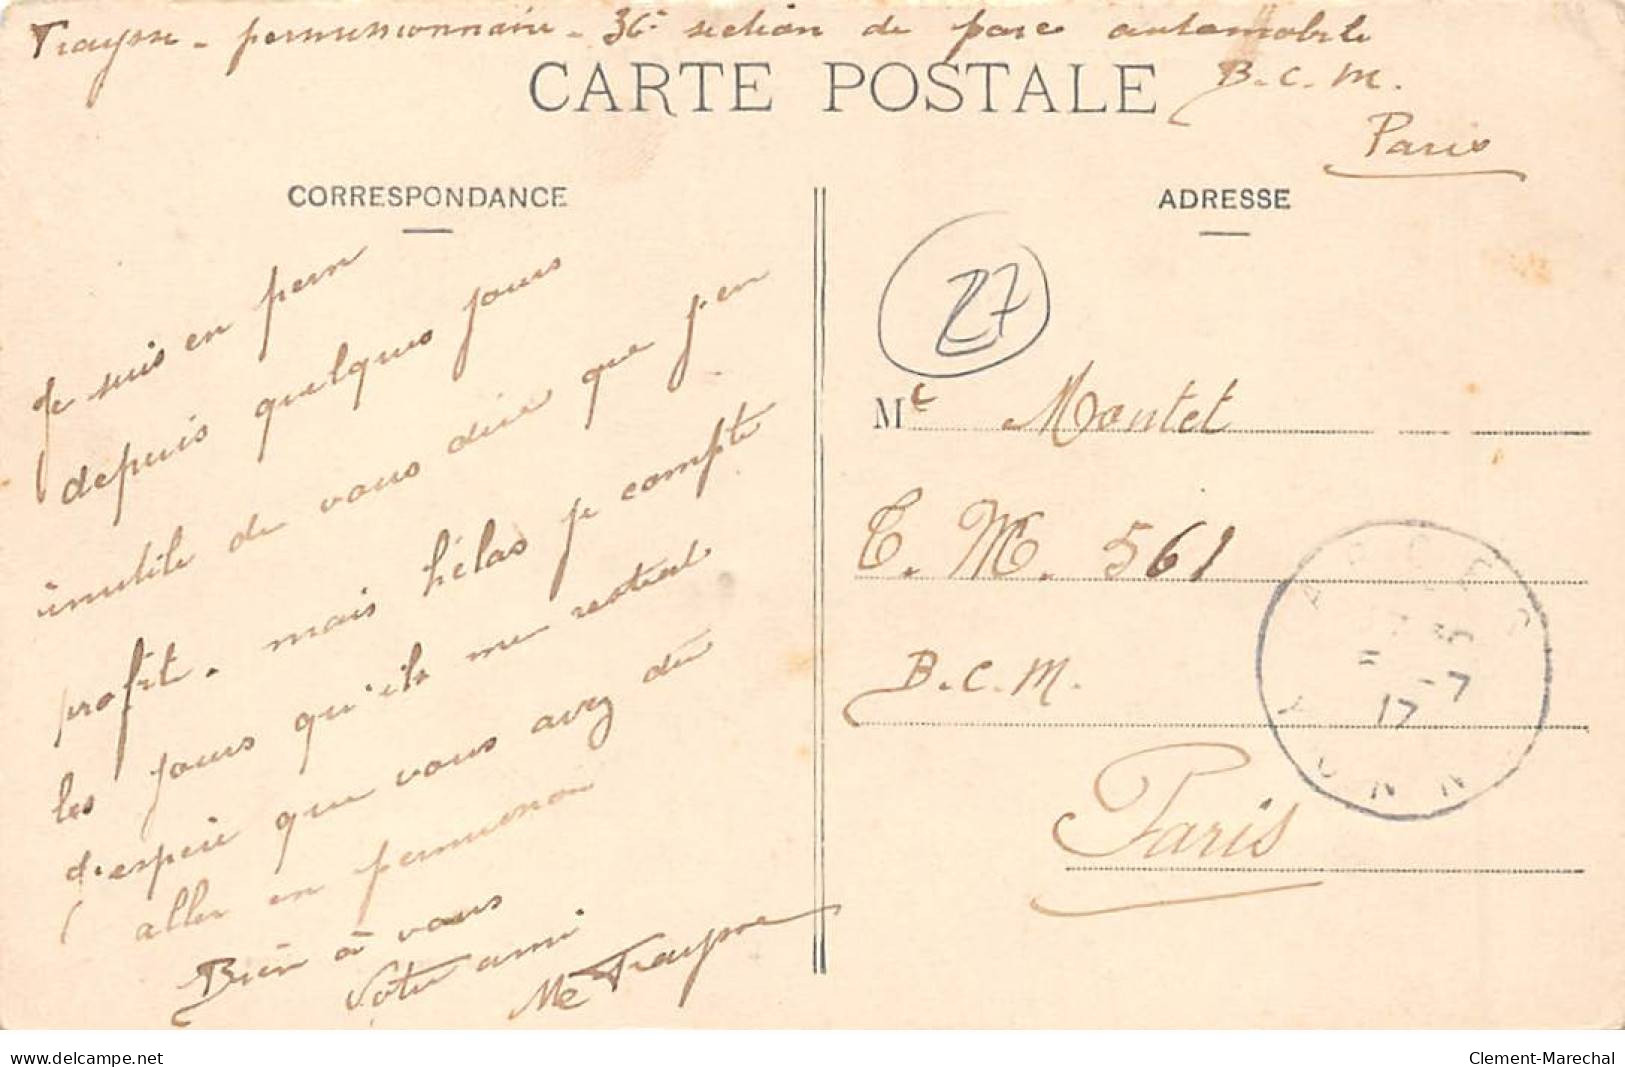 Traysse - permissionnaire - 36e section de parc automobile
B.C.M.
Paris
CARTE POSTALE
CORRESPONDANCE
ADRESSE
Je suis en perm
depuis quelques jours
inutile de vous dire que j'en
profite. mais hélas je compte
les jours qu'ils me restent
J'espère que vous avez dû
aller en permission
Bien à vous
Votre ami
Me Traysse
27
M Montet
T. M. 561
B.C.M.
Paris
ARCES
YONNE
5 -7
17
www.delcampe.net
Clement-Marechal